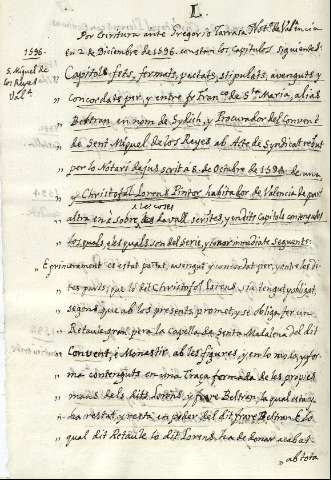 L.
Por Escritura ante Gregorio Tarrasa Not.º de Val.ª
1596.
en 2 de Diciembre de 1596. constan los Capitulos siguientes:
S. Miguel de
los Reyes
Val.ª
Capitols fets, formats, pactats, stipulats, avenguts y
" concordats per, y entre fr. Fran.co de S.ta Maria, alias
" Beltran en nom de Syndich, y Procurador del Convent
" de Sent Miquel de los Reyes ab Acte de Syndicat rebut
" per lo Notari dejus scrit a 8. de Octubre de 1594. de una
" y Christofol Lorens Pintor habitador de Valencia de part
a les coses
" altra en é sobre les davall scrites, y en dits Capitols contengudes
" los quals é es quals son del serie, y tenor inmediate seguents:
" E primerament es estat pactat, avengut y concordat per, y entre les di-
" tes parts, que lo dit Christofol Lorens, sia tengut y obligat,
" segons que ab los presents promet, y se obliga fer un
" Retaule gran pera la Capella de Senta Madalena del dit
" Convent, é Monestir, ab les figures, y en lo modo, y for-
" ma contenguts en una Traça formada de les propies
" mans dels dits Lorens, y frare Beltran, la qual esta y
" ha restat, y resta en poder del dit frare Beltran é lo
" qual dit Retaule lo dit Lorens, ha de donar acabat
" ab tota